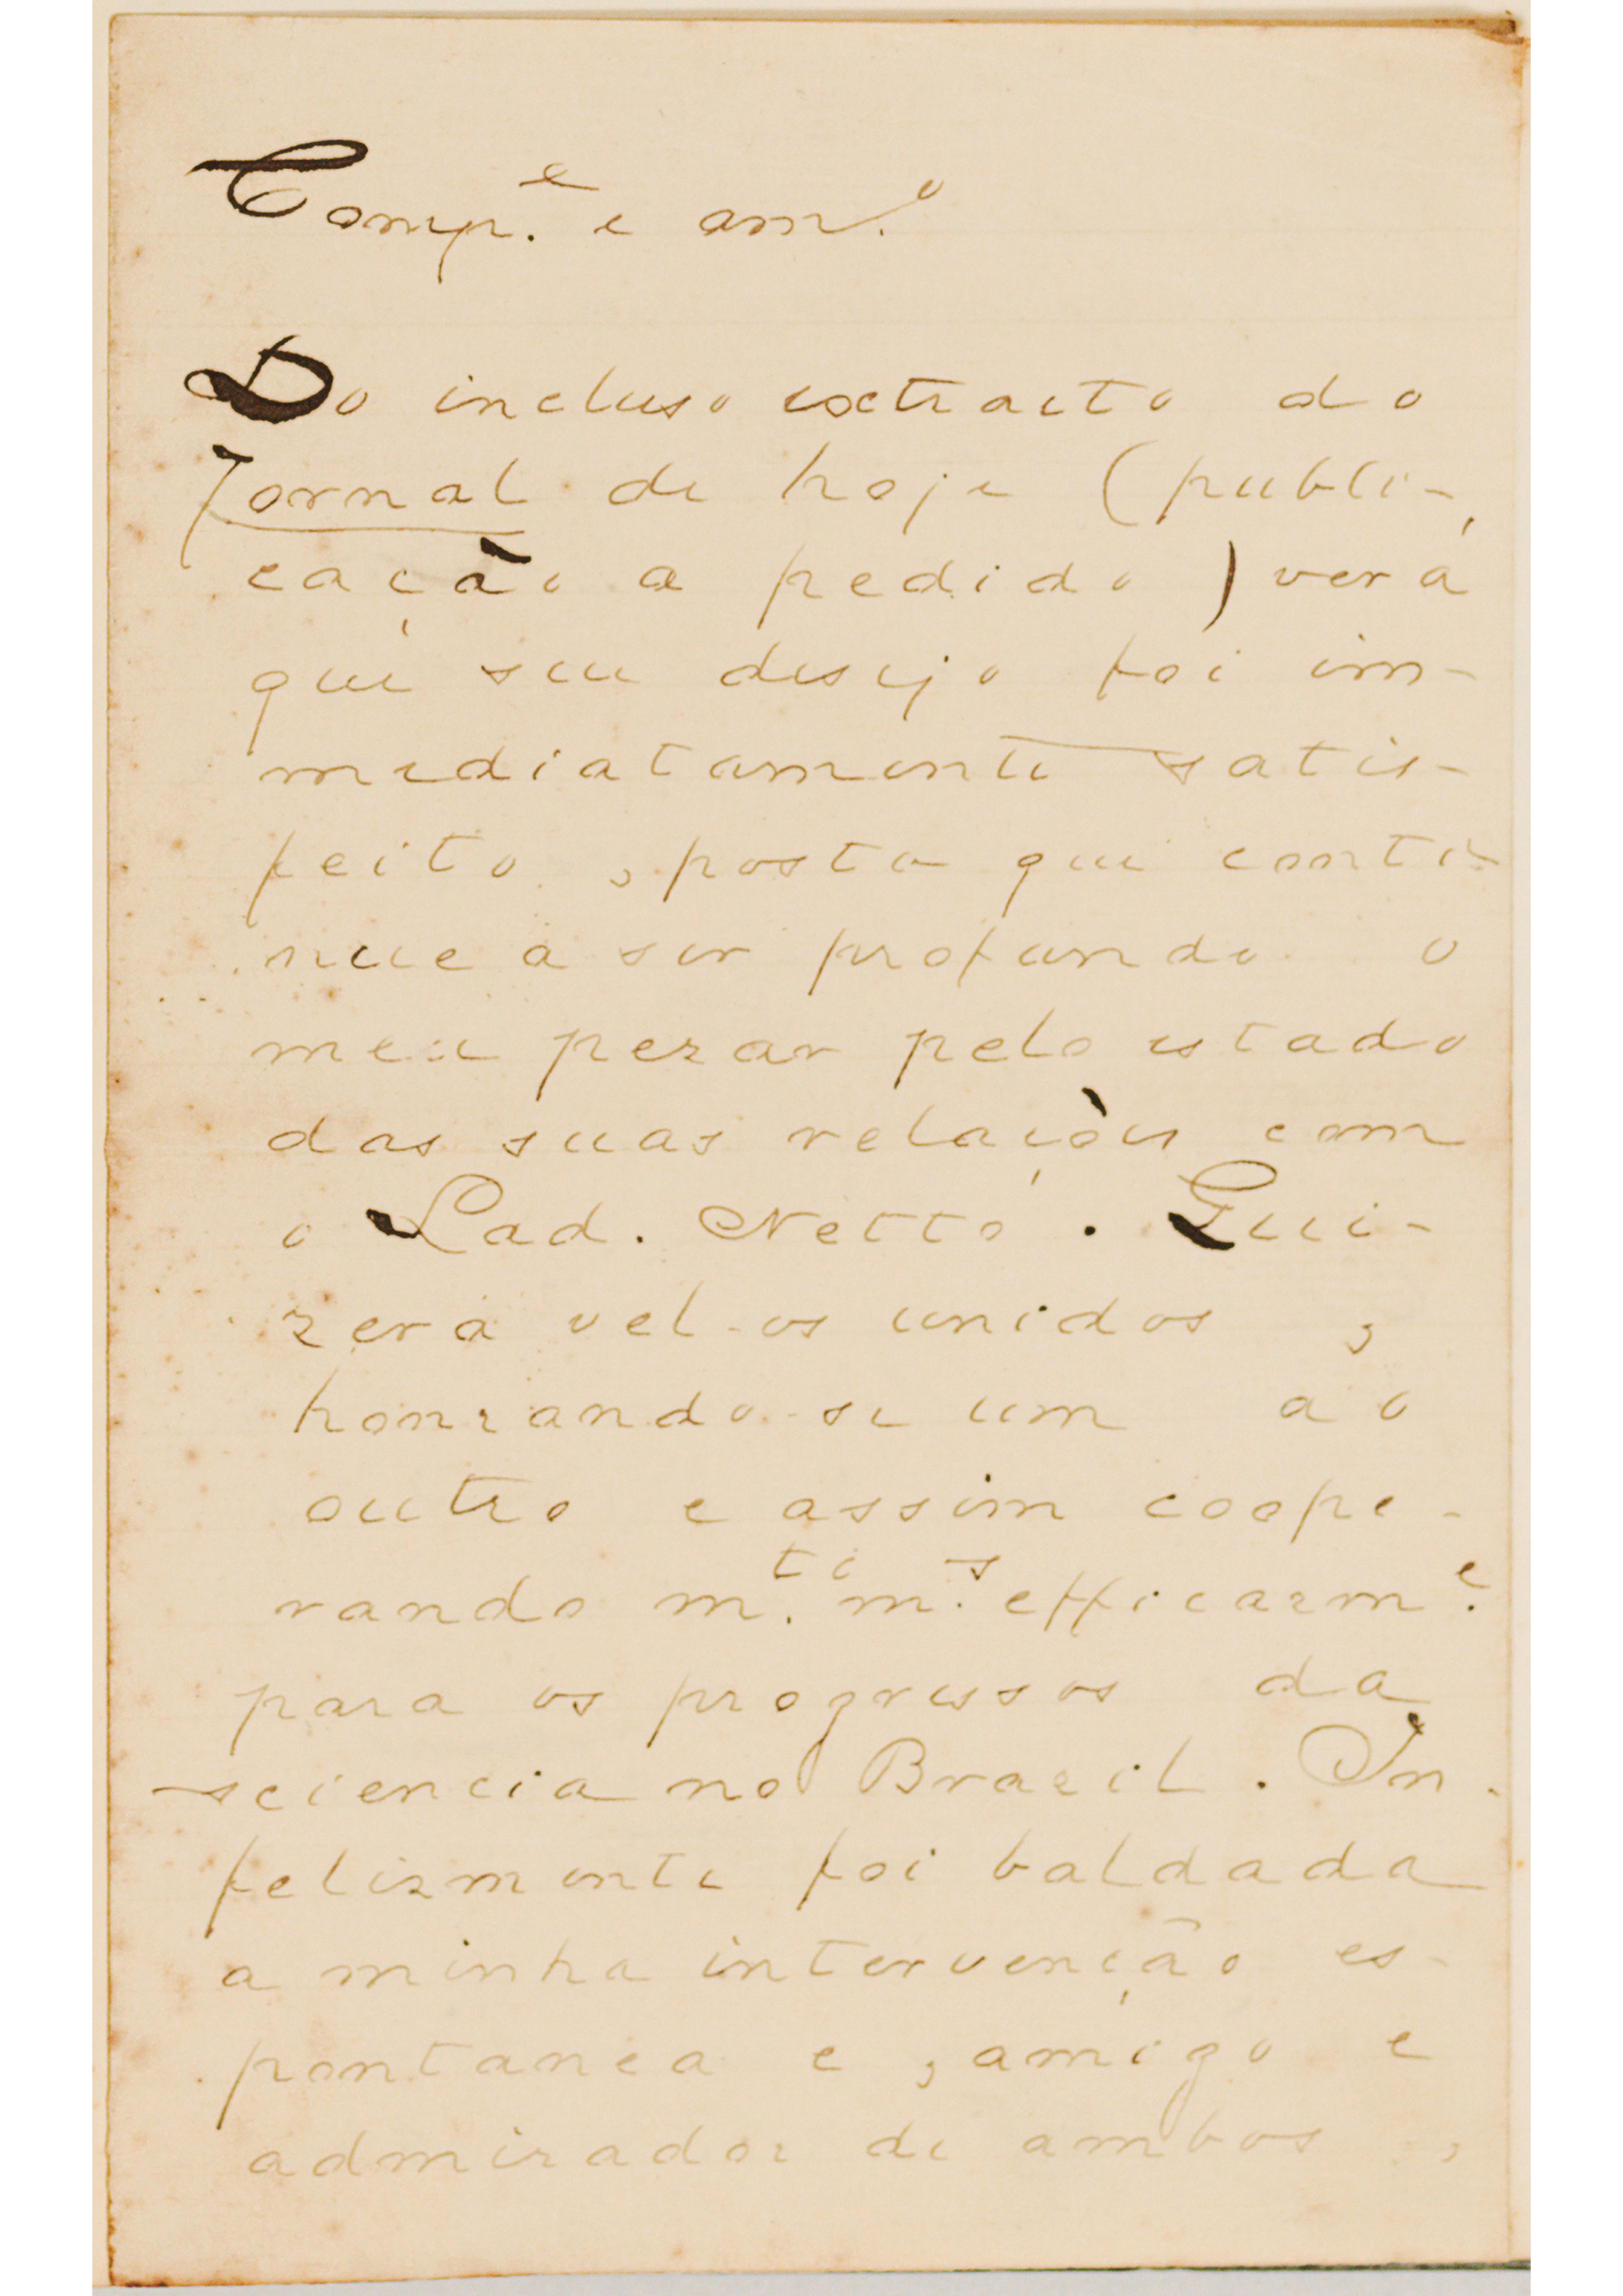 Comp.e e am.o
Do incluso extracto do
Jornal de hoje (publi-
cação a pedido) verá
que seu desejo foi im-
mediatamente satis-
feito, posto que conti-
nue a ser profundo o
meu pezar pelo estado
das suas relações com
o Lad. Netto. Qui-
zera vel-os unidos,
honrando-se um ao
outro e assim coope-
rando m.te m.s efficazm.e
para os progressos da
sciencia no Brazil. In-
felizmente foi baldada
a minha intervenção es-
pontanea e, amigo e
admirador de ambos,